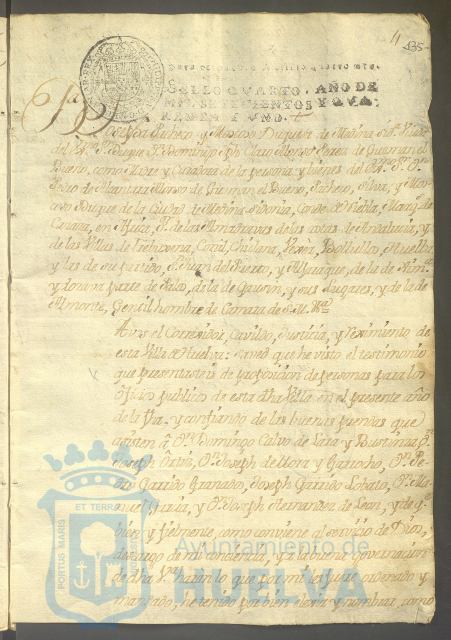 11
435
SELLO QVARTO, AÑO DE
MIL SETECIENTOS Y QVA
RENTA Y VNO.
Josepha Pacheco y Moscoso Duquesa de Medina Sidª Viuda
del Exmo Sr Duque Dn Domingo Jph Claro Alonso Perez de Guzman el
Bueno, como Madre y Curadora de la persona y bienes del Exmo Sr Dn
Pedro de Alcantara Alonso de Guzman el Bueno, Pacheco, Silva, y Mos
coso Duque de la Ciudad de Medina Sidonia, Conde de Niebla, Marqs de
Cazaza, en Africa, Sr de las Almadravas de las costas de Andalucia, y
de las Villas de Trebuxena, Conil, Chiclana, Vexer, Bollullos, Huelba
y las de su partido, Sn Juan del Puerto, y Aljaraque, de la de Ximª
y la otra parte de Palos, de la de Gaucin, y sus Lugares, y de la de
Almonte, Gentilhombre de Camara de S. M. &ª
A vos el Correxidor, Cavildo, Justicia, y Reximiento de
esta Villa de Huelva: saved que he visto el testimonio
que presentasteis de proposicion de personas para los
oficios publicos de esta dha Villa en el presente año
de la fha. y confiando de las buenas prendas que
asisten â Dn Domingo Calvo de Lara y Bustinza, Dn
Joseph Ortiz, Dn Joseph de Mora y Garrocho, Dn Pe
dro Garrido Granado, Joseph Garrido Lobato, Dn Ma
nuel Garcia, y Dn Joseph Hernandez de Leon, y de qe
bien y fielmente, como conviene al servicio de Dios,
descargo de mi conciencia, y a la buena governacion
de dha Vª haran lo que por mi les fuere ordenado y
mandado, he tenido por bien elexir y nombrar, como
PORTUS MARIS
ET TERRÆ
Ayuntamiento de
HUELVA